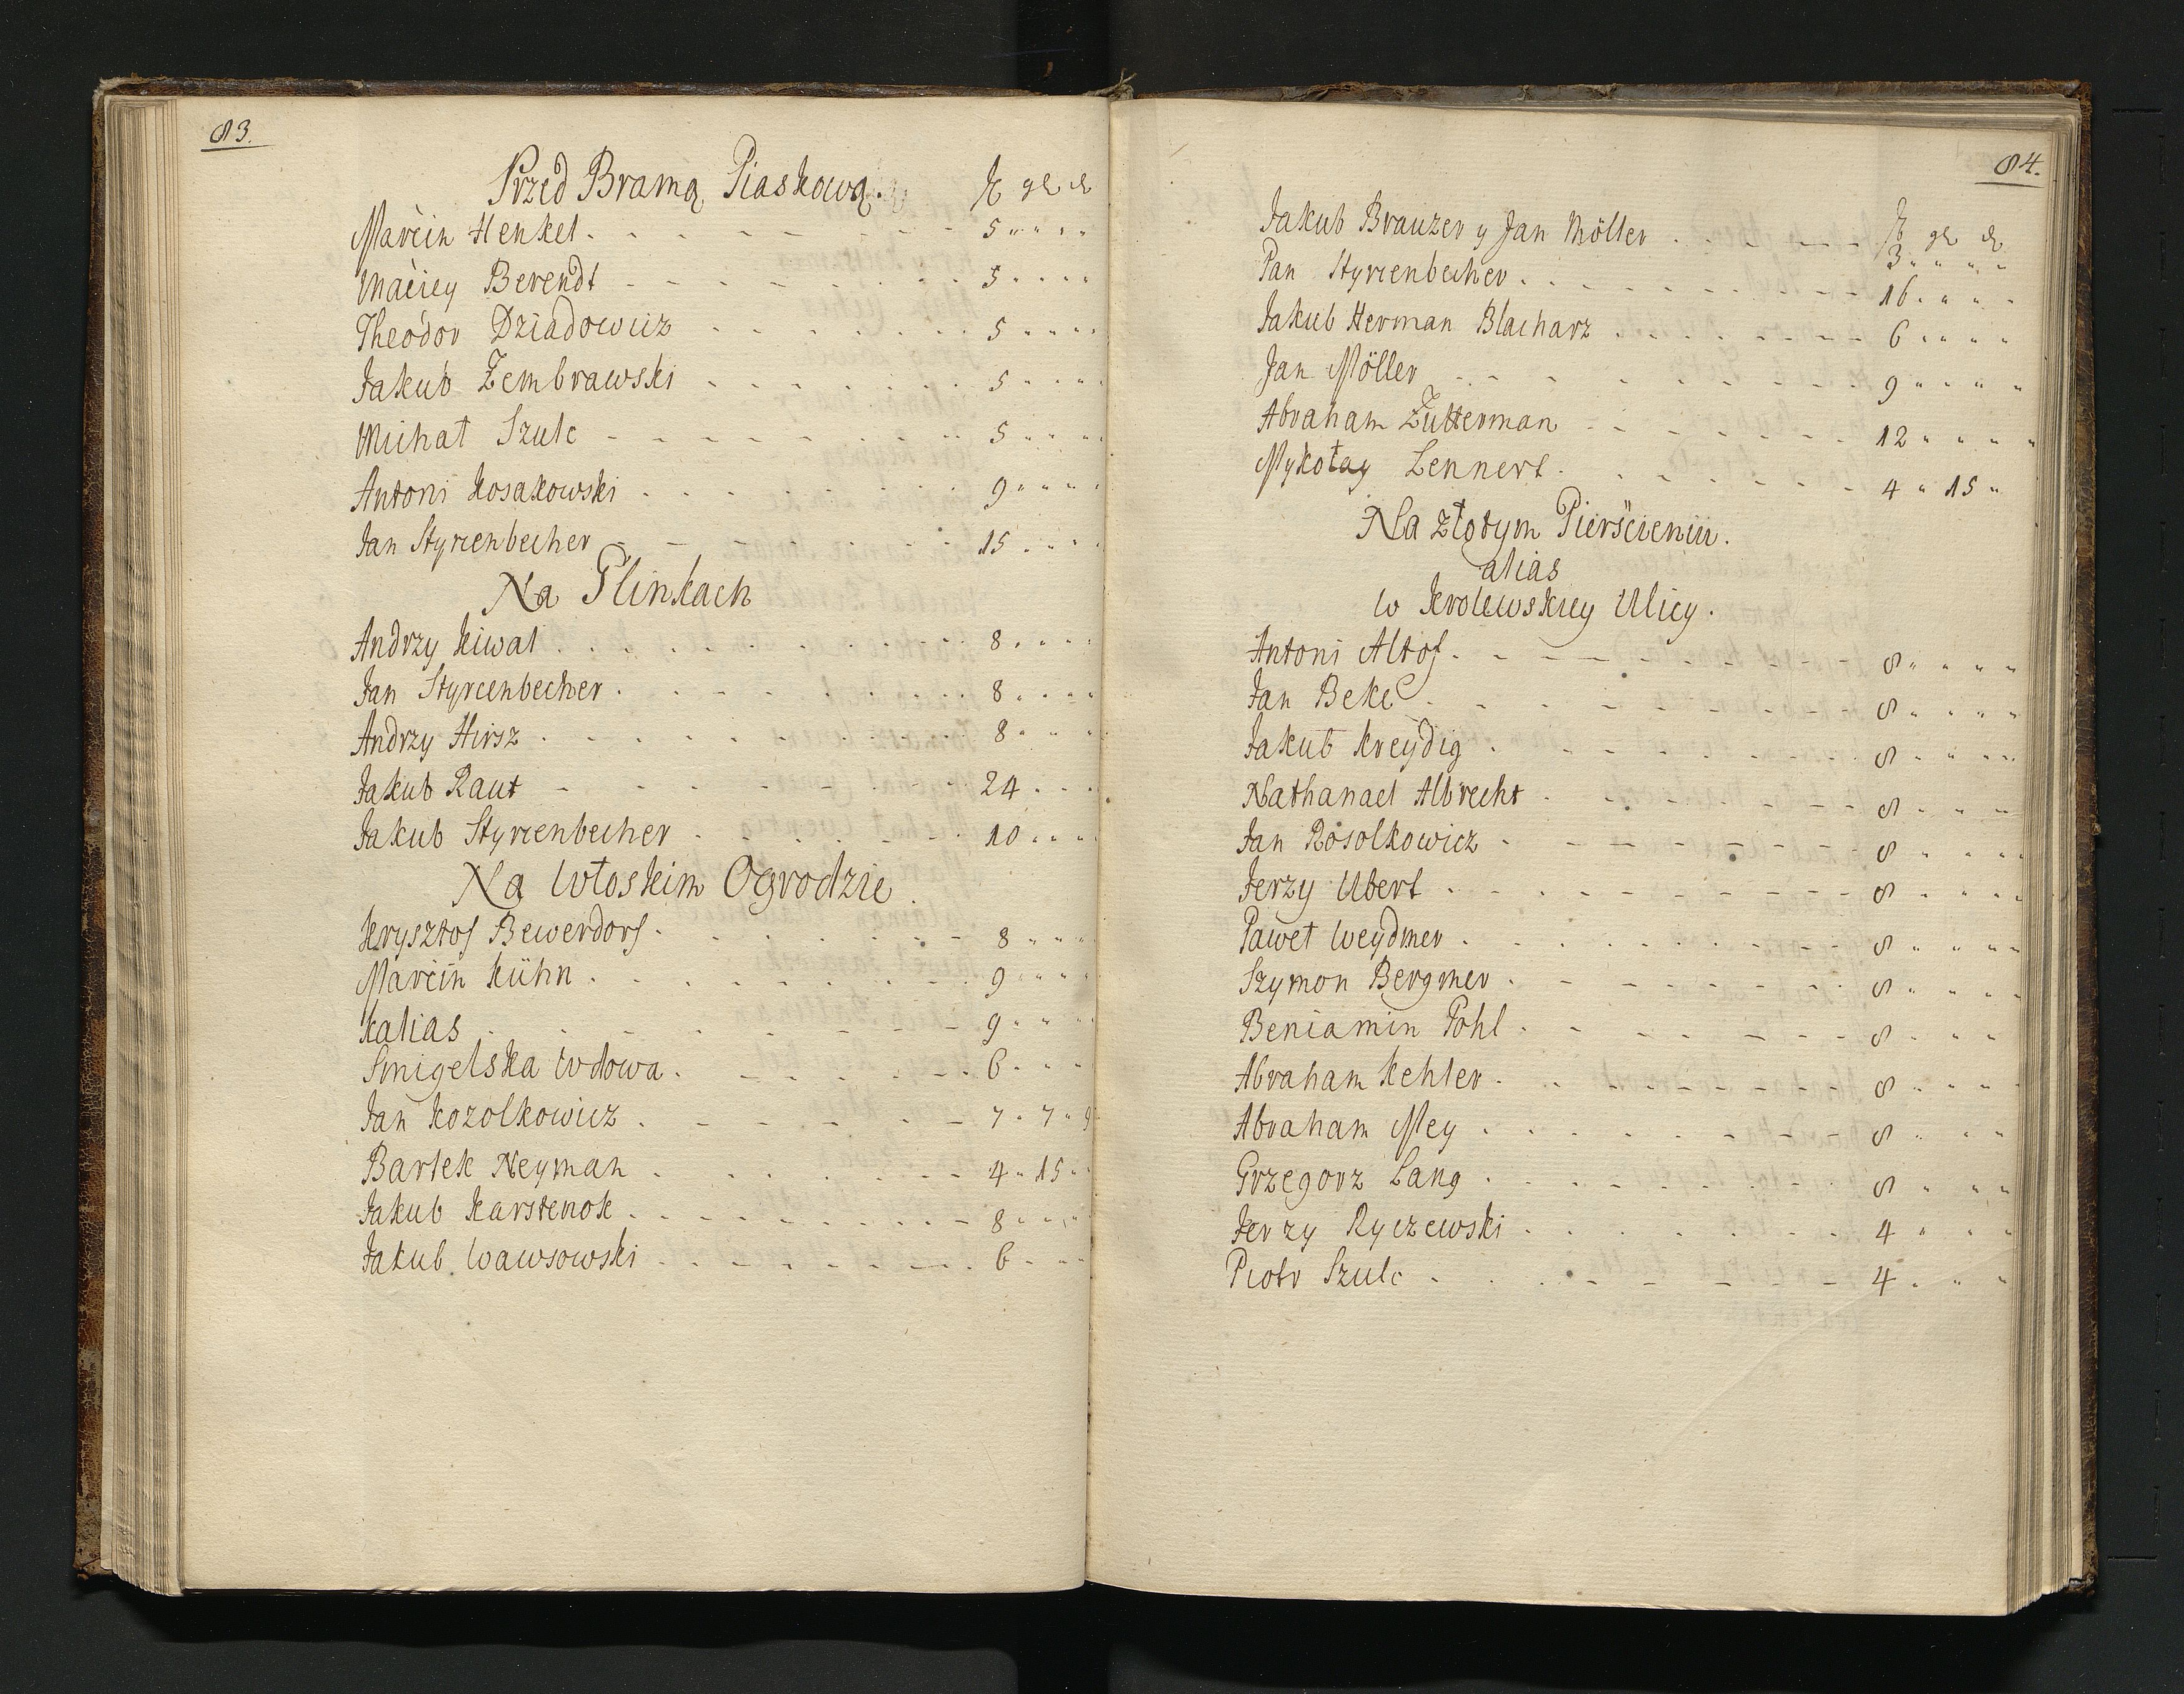 83.
Przed Bramą Piaskową. gl
Marćin Henkel. 5
Maćiey Berendt 5
Theodor Dziadowicz 5
Jakub Zembrawski 5
Michał Szulc 5
Antoni Kosakowski 9
Jan Styrcenbecher 15
Na Glinkach
Andrzy Kiwal 8
Jan Styrcenbecher 8
Andrzy Hirsz 8
Jakub Raut 24
Jakub Styrcenbecher 10
Na Włoskim Ogrodzie.
Krysztof Bewerdorf 8
Marćin Kühn 9
Kalias 9
Smigelska Wdowa 6
Jan Kozolkowicz 7 7 9
Bartek Neyman 4 15
Jakub Karstenok 8
Jakub Wawsowski 6
84.
Jakub Brauzer y Jan Möller gl
3
Pan Styrcenbecher 16
Jakub Herman Blacharz 6
Jan Möller 9
Abraham Zutterman 12
Mykołay Lennert 4 15
Na złotym Pierścieniu.
alias
w Krolewskiey Ulicy.
Antoni Altof 8
Jan Beke 8
Jakub Kreydig 8
Nathanael Albrecht 8
Jan Rosolkowicz 8
Jerzy Ubert 8
Paweł Weydmer 8
Szymon Bergmer 8
Beniamin Pohl 8
Abraham Kehler 8
Abraham Mey 8
Grzegorz Lang 8
Jerzy Ryczewski 4
Piotr Szulc 4